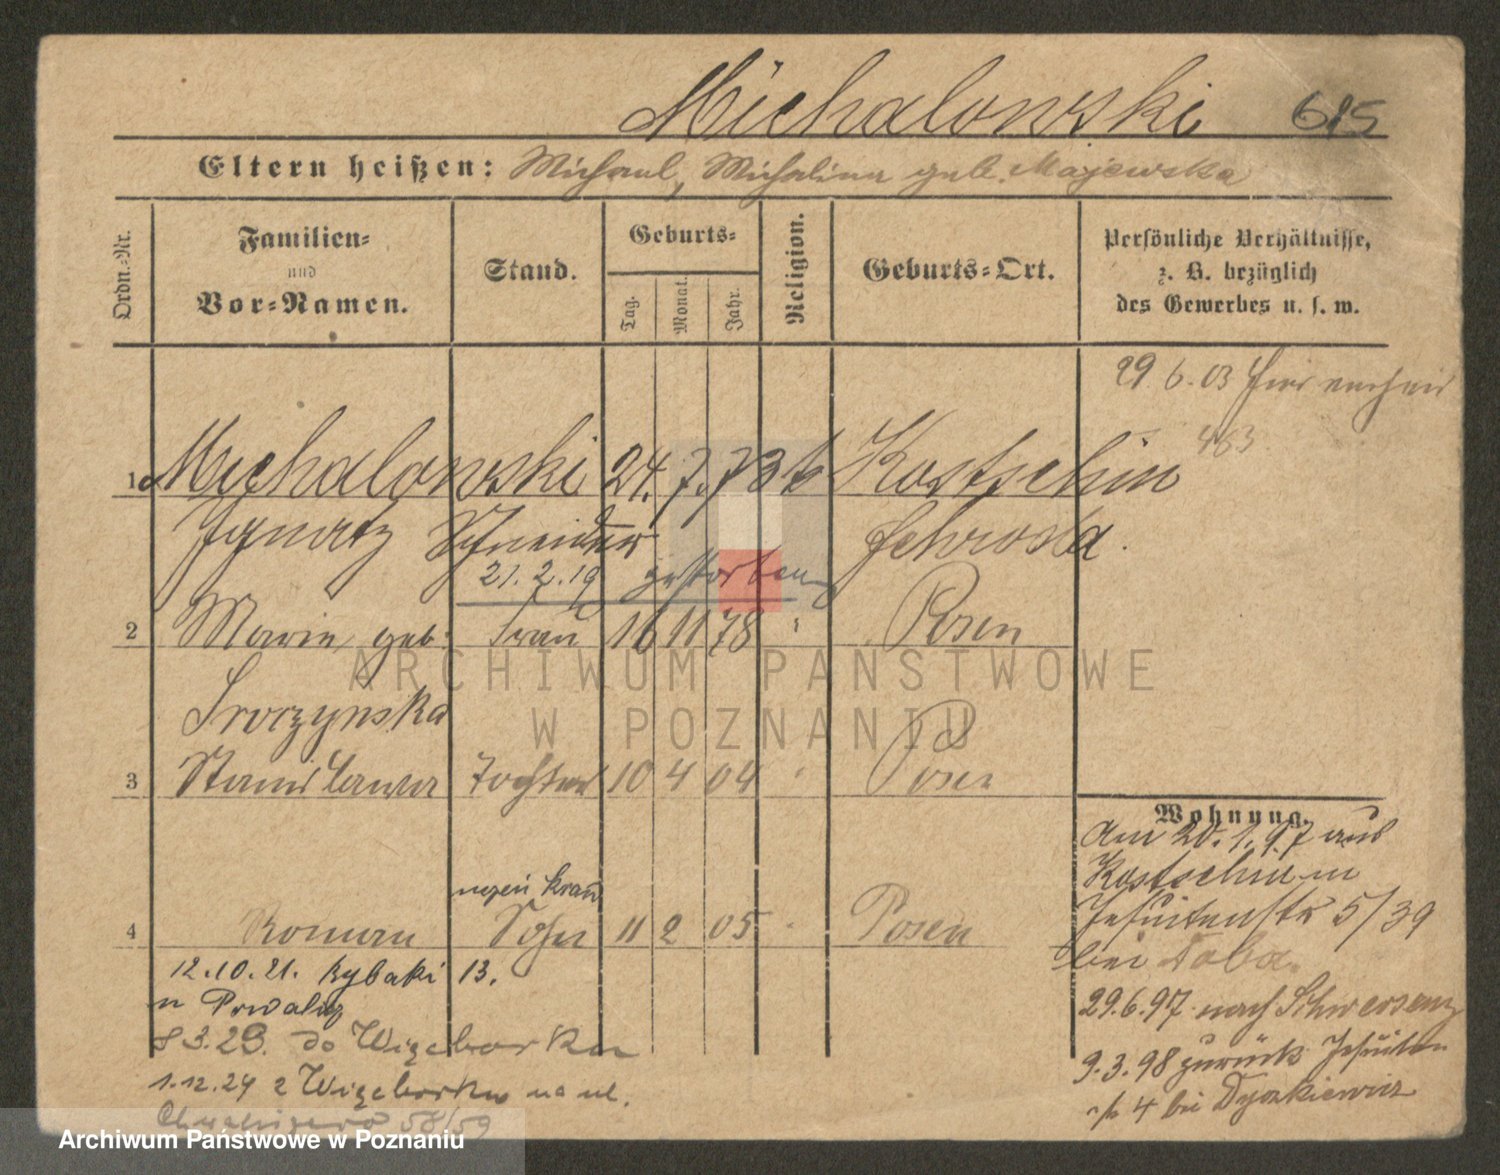 Michalowski 615
Eltern heißen: Michael, Michalina geb. Majewska
Ordn.-Nr.
Familien-
und
Vor-Namen.
Stand.
Geburts-
Tag.
Monat.
Jahr.
Religion.
Geburts-Ort.
Persönliche Verhältnisse,
z. B. bezüglich
des Gewerbes u. s. w.
29 6. 03 hier
463
1 Michalowski 24. 7. 73 k Kostschin
Ignatz Schneider Schroda.
21. 2. 19 gestorben
2 Marie geb. Frau 16 11 78 " Posen
Sroczynska
3 Stanislawa Tochter 10 4 04 " Posen
Wohnung.
Am 20. 1. 97 aus
Kostschin n
Jesuitenstr 5/39
bei Taba.
4 Roman Sohn 11 2 05 " Posen
12.10.21. Rybaki 13.
29.6.97 nach Schwersenz
8 3.23. do Wizeborka
9.3.98 zurück Jesuiten
1.12.24 z Wizeborka na ul.
4 bei Dyszkiewicz
58/59
ARCHIWUM PAŃSTWOWE
W POZNANIU
Archiwum Państwowe w Poznaniu